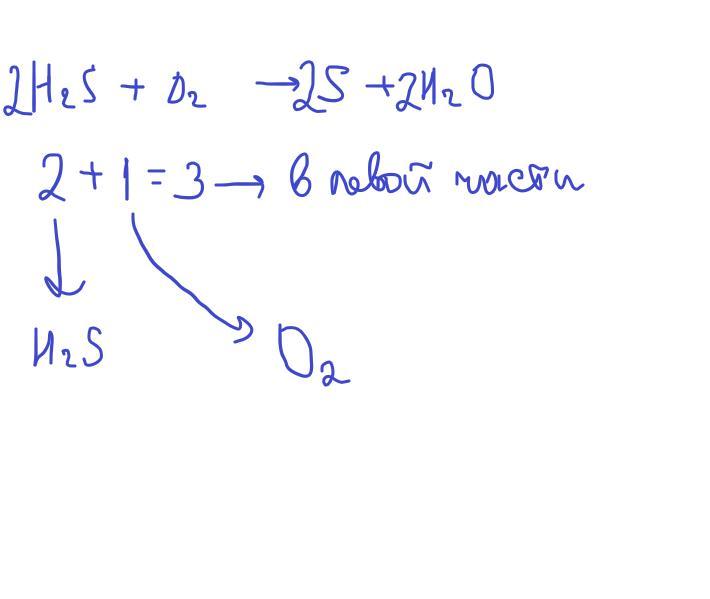 2H₂S + O₂ → 2S + 2H₂O
2 + 1 = 3 → в левой части
H₂S
O₂